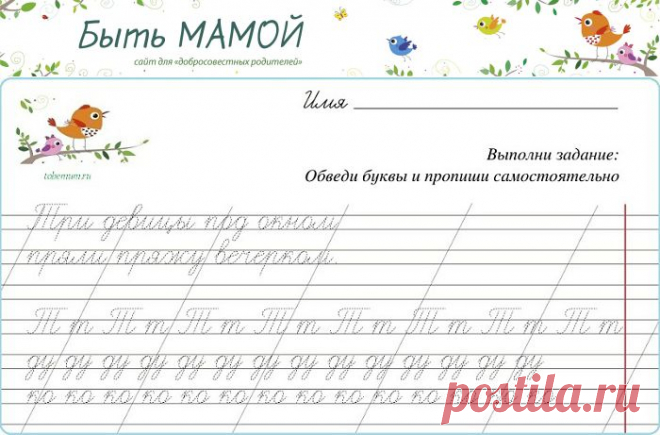 Быть МАМОЙ
сайт для «добросовестных родителей»
Имя
tobemum.ru
Выполни задание:
Обведи буквы и пропиши самостоятельно
Три девицы под окном
пряли пряжу вечерком.
Т т Т т Т т Т т Т т Т т Т т Т т
ду ду ду ду ду ду ду ду ду ду ду ду ду ду
ко ко ко ко ко ко ко ко ко ко ко ко ко ко
postila.ru